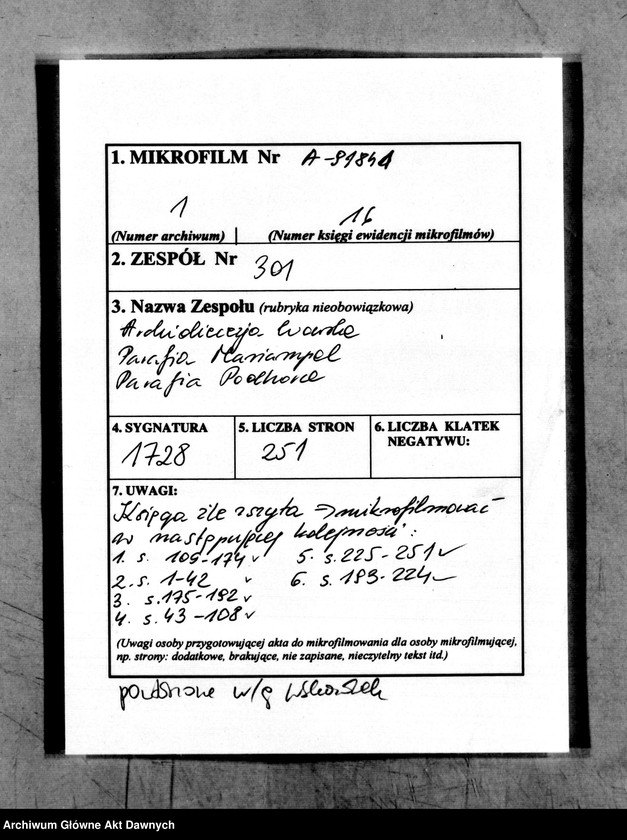 1. MIKROFILM Nr A-81841
1 16
(Numer archiwum) (Numer księgi ewidencji mikrofilmów)
2. ZESPÓŁ Nr 301
3. Nazwa Zespołu (rubryka nieobowiązkowa)
Archidiecezja Lwowska
Parafia Mariampol
Parafia Podhorce
4. SYGNATURA 5. LICZBA STRON 6. LICZBA KLATEK
NEGATYWU:
1728 251
7. UWAGI:
Księga źle zszyta => mikrofilmować
w następującej kolejności:
1. s. 109-174 v 5. s. 225-251 v
2. s. 1-42 v 6. s. 193-224 v
3. s. 175-192 v
4. s. 43-108 v
(Uwagi osoby przygotowującej akta do mikrofilmowania dla osoby mikrofilmującej,
np. strony: dodatkowe, brakujące, nie zapisane, nieczytelny tekst itd.)
w/g
Archiwum Główne Akt Dawnych